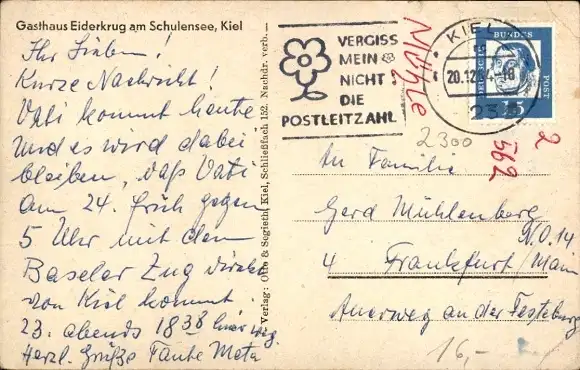 Gasthaus Eiderkrug am Schulensee, Kiel
Ihr Lieben!
Kurze Nachricht!
Vati kommt heute
und es wird dabei
bleiben, daß Vati
am 24. früh gegen
5 Uhr mit dem
Baseler Zug direkt
von Kiel kommt.
23. abends 18 38 hier weg
Herzl. Grüße Tante Meta
Verlag: Otto & Segieth, Kiel, Schließfach 152. Nachdr. verb.
VERGISS
MEIN
NICHT
DIE
POSTLEITZAHL
KIEL
20.12.
DEUTSCHE BUNDESPOST
15
2300
562
An Familie
Gerd Mühlenberg
N.O.14
4 Frankfurt/Main
Auerweg an der Festeburg
16,-